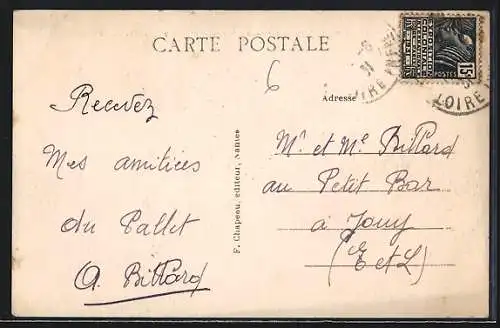 CARTE POSTALE
6
Adresse
Recevez
Mes amitiées
du Pallet
A. Billard
F. Chapeau, editeur, Nantes
Mr et Me Billard
au Petit Bar
à Jouy
(E et L)
15c
POSTES
LOIRE